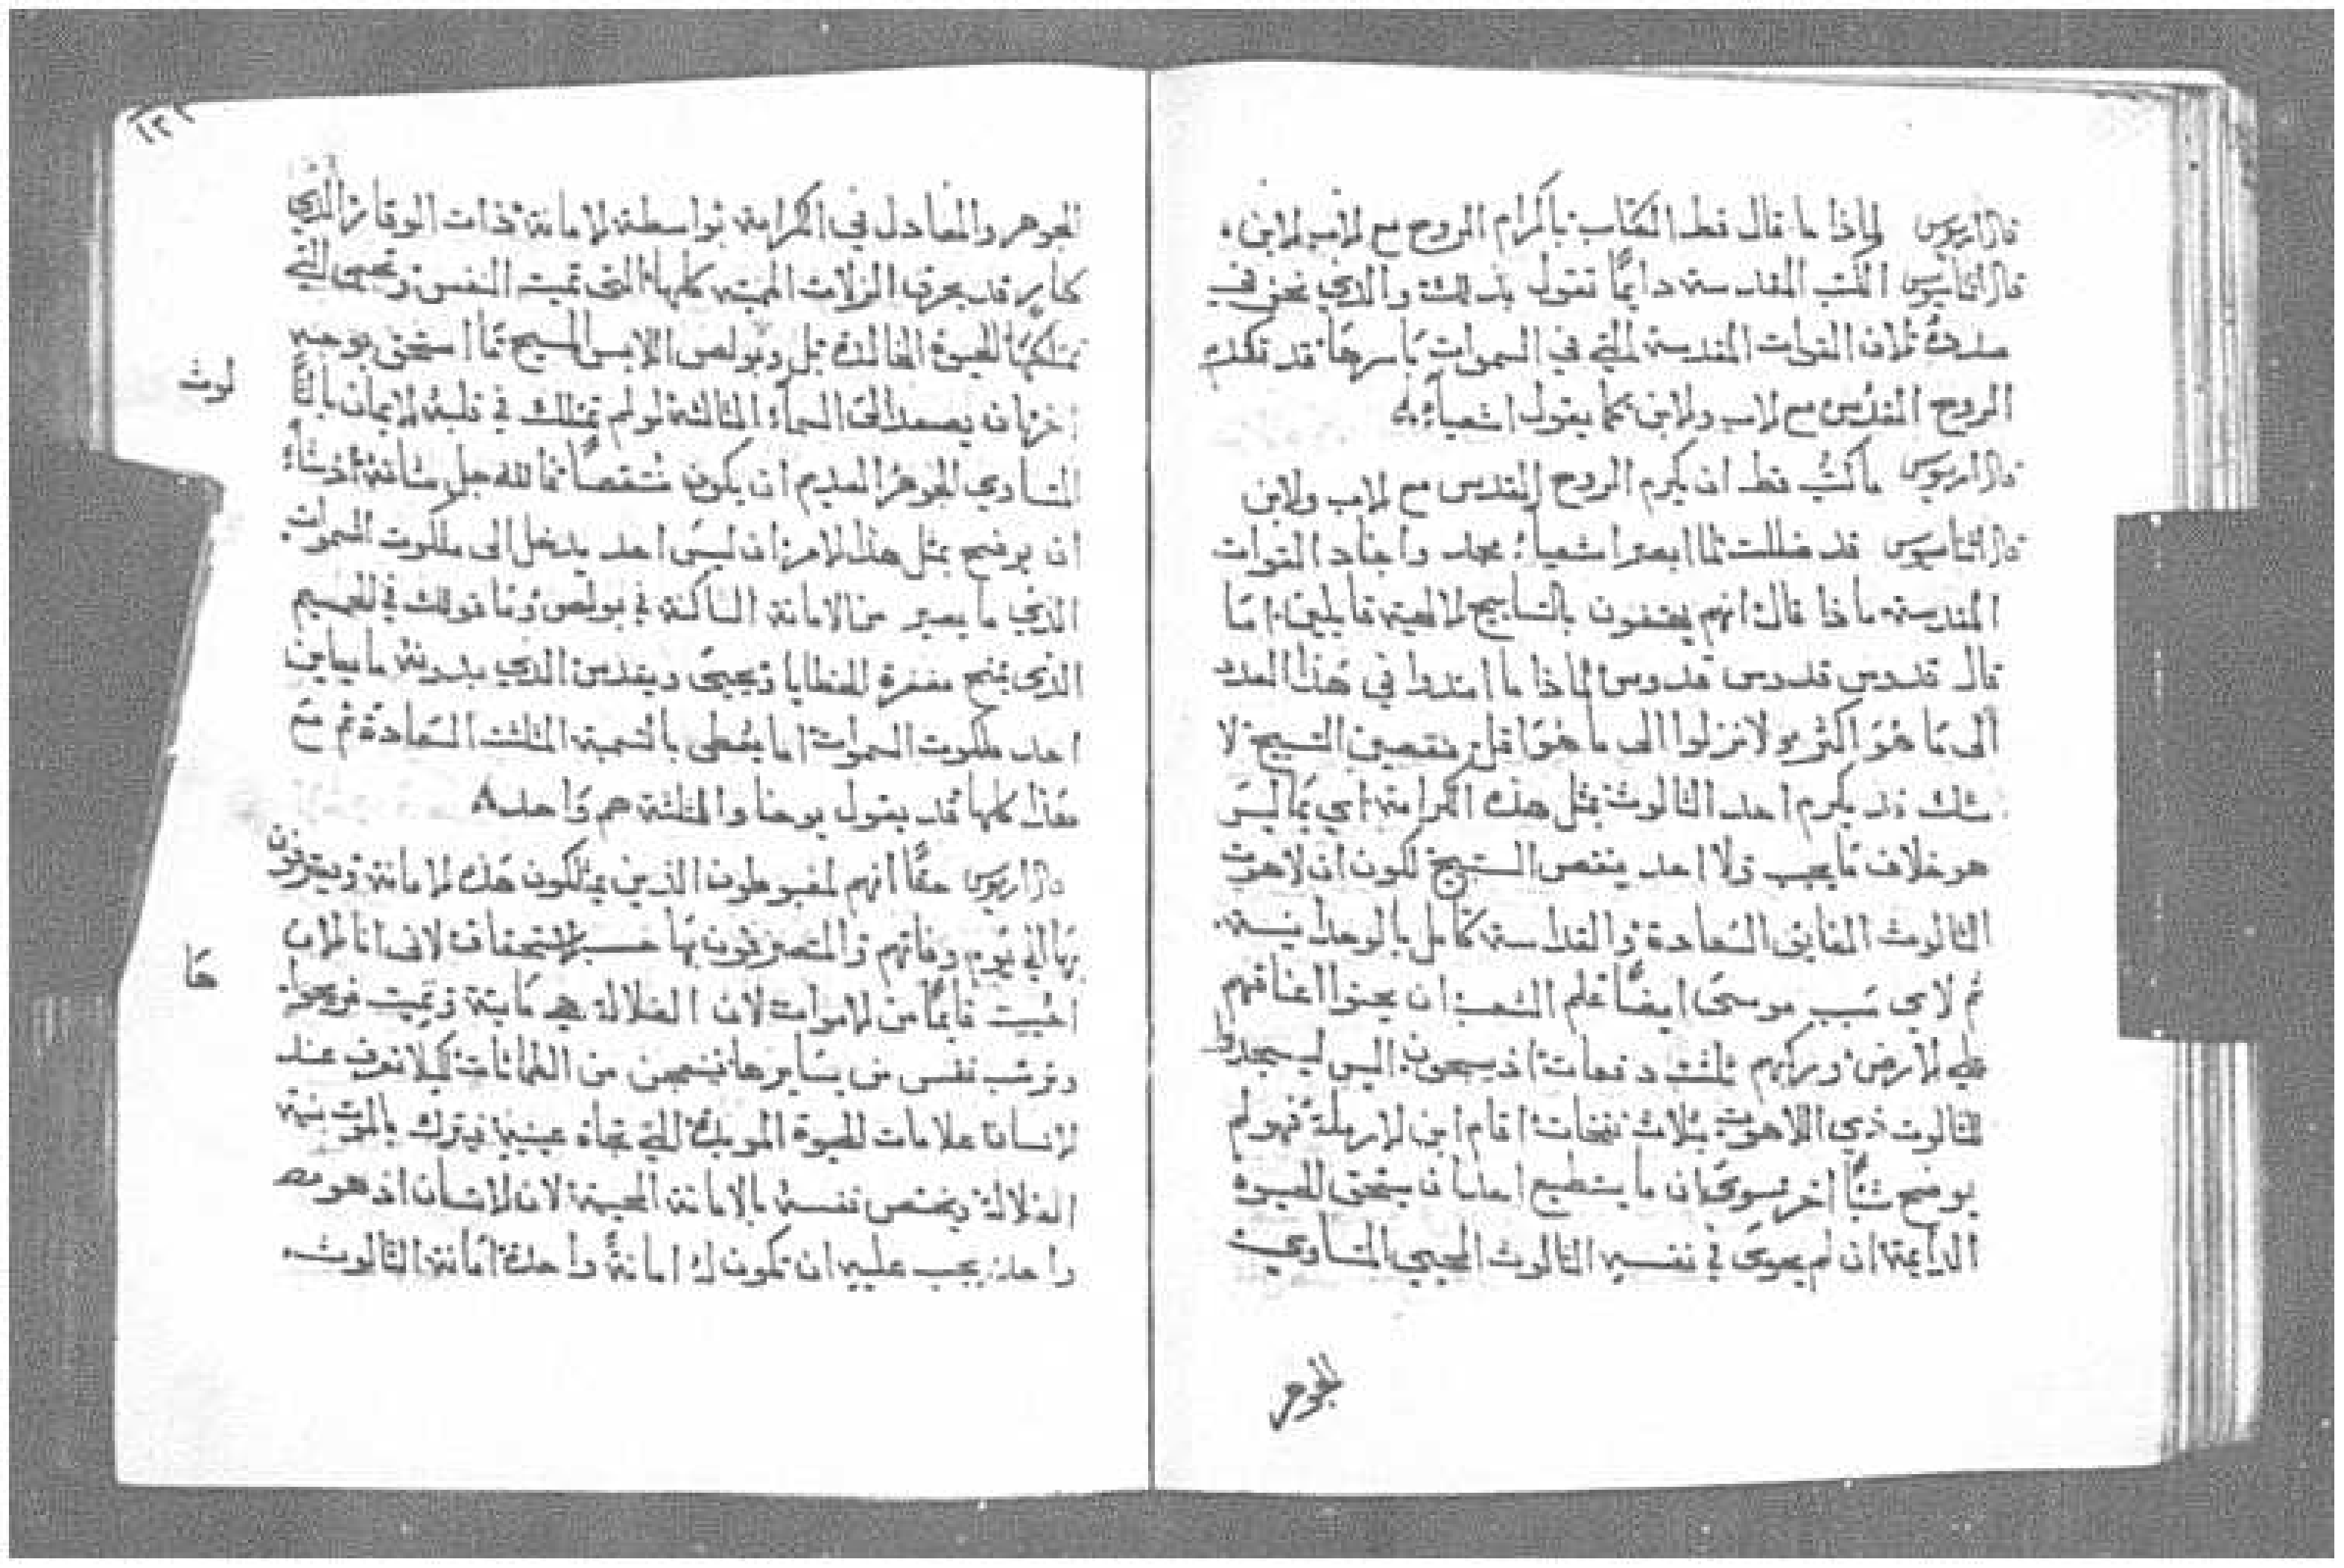 قال اريوس لماذا ما قال قط الكتاب باكرام الروح مع لاب لابن
قال اتناسيوس الكتب المقدسة دايمًا تقول بذلك والذي نحن في
صدده لان القوات المقدسة التي في السموات باسرها قد تكلل
الروح القدس مع لاب ولابن كما يقول اشعياء
قال اريوس ما كتب قط ان يكرم الروح القدس مع لاب ولابن
قال اتناسيوس قد ضللت لما ابصر اشعياء مجد واجناد القوات
المقدسة ماذا قال انهم يهتفون بالتسابيح لالهية قايلين اما
قال قدوس قدوس قدوس لماذا ما امتدوا في هذا العدد
الى ما هو اكثر ولا نزلوا الى ما هو اقل منقصين التسبيح لا
شك قد يكرم احد الثالوث بمثل هذه الكرامة اي بما ليس
هو خلاف ما يجب ولا احد ينقص التسبيح لكون ان لاهوت
الثالوث الفايق السعادة والقداسة كامل بالوحدانية
ثم لاي سبب موسى ايضًا علم الشعب ان يحنوا اعناقهم
على لارض وركبهم ثلث دفعات اذ يسبحون اليس ليسجدوا
للثالوث ذي اللاهوت بثلاث نفخات اقام ابن لارملة فهو لم
يوضح شيًا اخر سوى ان ما يستطيع احد ان يستحق للحيوة
الدايمة ان لم يحوى في نفسه الثالوث المحيي المتساوي
للجوهر
١٣١
الجوهر والمعادل في الكرامة بواسطة لامانة ذات الوقار الذي
كنار قد يحرق الزلات الميتة كلها التي تميت النفس وتحيي التي
تمتلكها للحيوة الخالدة بل وبولص اللابس المسيح ما استحق بوجه
اخر ان يصعد الى السماء الثالثة لو لم تمتلك في قلبه لايمان بالثا
لوث
المتساوي الجوهر العديم ان يكون منتقصًا فالله جل شانه اذ شاء
ان يوضح بمثل هذا لامر ان ليس احد يدخل الى ملكوت السموات
الذي ما يصير من الامانة الساكنة في بولص وما قولك في العميم
الذي يمنح مغفرة للخطايا ويحيى ويقدس الذي بدونه ما يعاين
احد ملكوت السموات اما يعطى بالتسمية المثلثة السعادة ثم مع
هذا كلها قد يقول يوحنا والثلثة هم واحد
قال اريوس حقًا انهم لمغبوطون الذين يمتلكون هذه لامانة ويعترفون
بها الى يوم وفاتهم والمتصرفون بها حسب لاستحقاق لانى انا لان
ها
احييت قايمًا من لاموات لان الضلالة هي مايتة وتميت
وترتب نفس من يسايرها
لانسان علامات للحيوة الموبدة التي تجاه عينيه فيترك بالموت
الضلالة ويختص نفسه بالامانة المحيية لان لانسان اذ هو
واحد يجب عليه ان تكون له امانةً واحدة امانة الثالوث